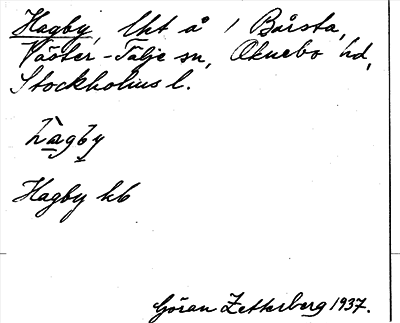 Hagby, lht å 1 Bårsta,
Väster-Tälje sn, Öknebo hd,
Stockholms l.
hàgby
Hagby kb
Göran Zetterberg 1937.